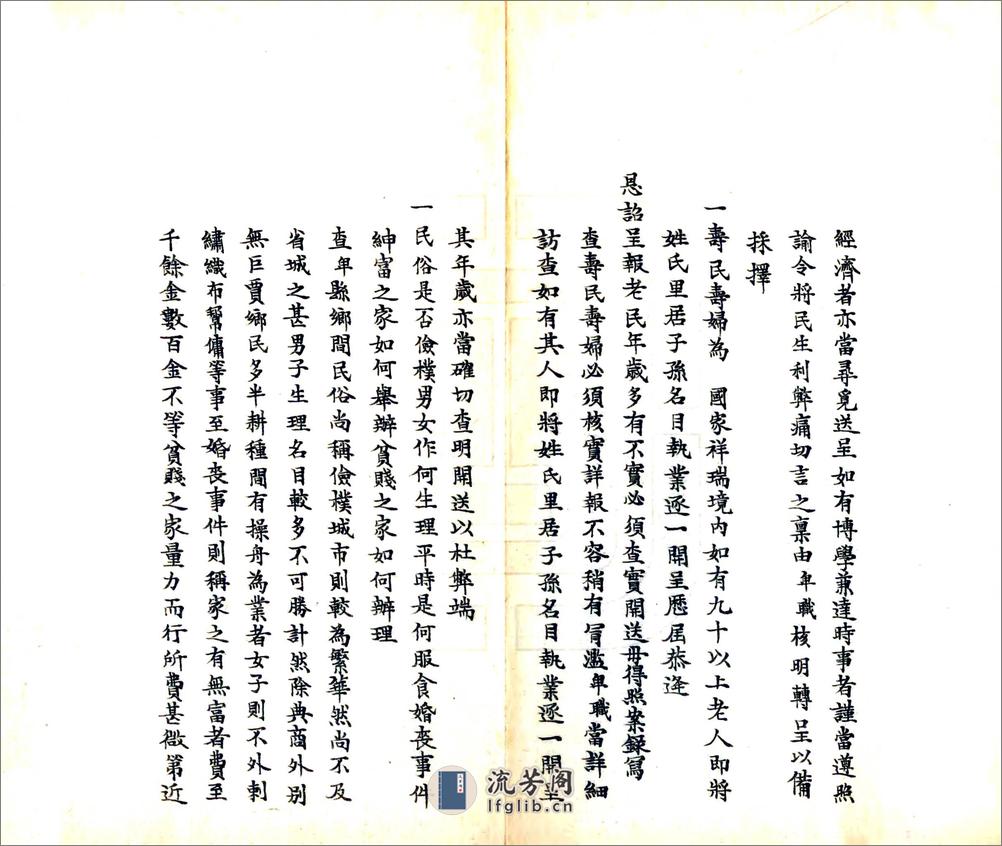 經濟者亦當尋覓送呈如有博學兼達時事者謹當遵照
諭令將民生利弊痛切言之稟由卑職核明轉呈以備
採擇
一壽民壽婦為 國家祥瑞境內如有九十以上老人即將
姓氏里居子孫名目執業逐一開呈歷屆恭逢
恩詔呈報老民年歲多有不實必須查實開送毋得照案錄寫
查壽民壽婦必須核實詳報不容稍有冒濫卑職當詳細
訪查如有其人即將姓氏里居子孫名目執業逐一開呈
其年歲亦當確切查明開送以杜弊端
一民俗是否儉樸男女作何生理平時是何服食婚喪事件
紳富之家如何舉辦貧賤之家如何辦理
查卑縣鄉間民俗尚稱儉樸城市則較為繁華然尚不及
省城之甚男子生理名目較多不可勝計然除典商外別
無巨賈鄉民多半耕種間有操舟為業者女子則不外刺
繡織布幫傭等事至婚喪事件則稱家之有無富者費至
千餘金數百金不等貧賤之家量力而行所費甚微第近
流芳閣
lfglib.cn